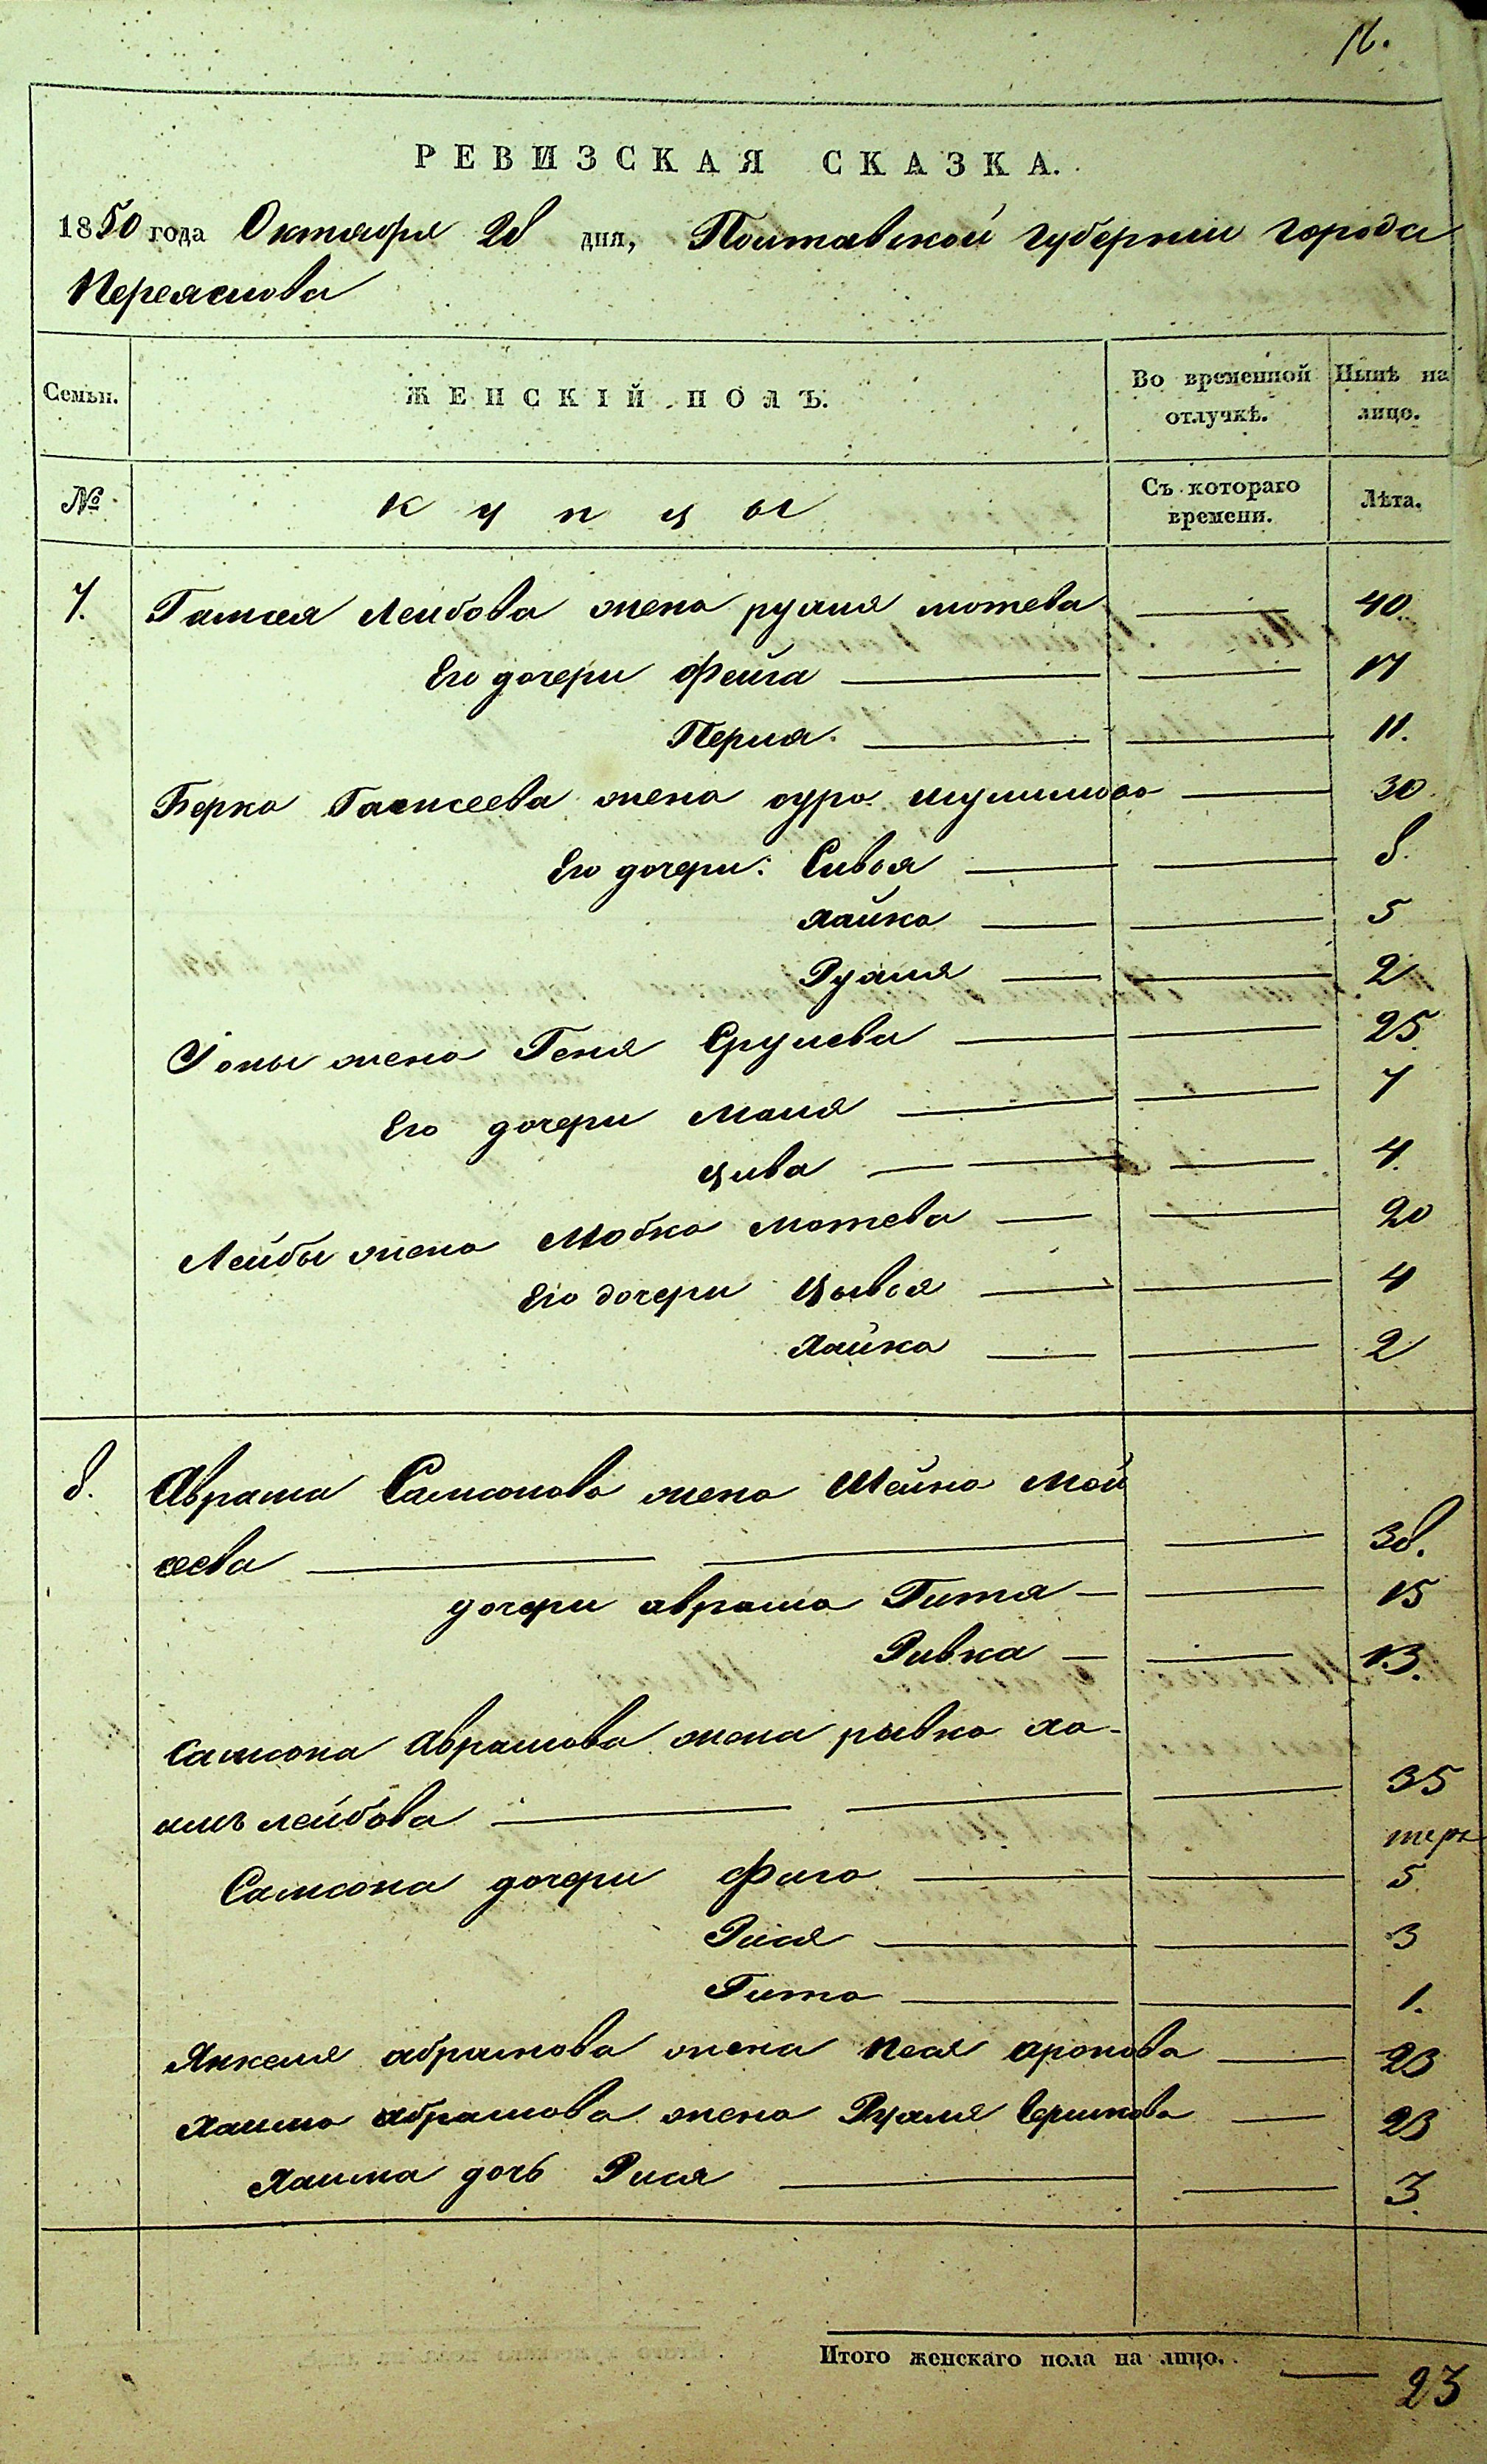 РЕВИЗСКАЯ СКАЗКА.
1850 года Октября 28 дня, Полтавской губернии города
Переяслова
Семьи. ЖЕНСКІЙ ПОЛЪ. Во временной отлучкѣ. Нынѣ на лицо.
№ купцы Съ котораго времени. Лѣта.
7. Лейбова жена рухля мотева 40.
Его дочери Фейга 17
Перля 11.
Берка жена сура 30
Его дочери: Сивья 8.
Хайка 5
Рухля 2
Іоны жена Геня Срулева 25
Его дочери Маля 7
Цива 4.
Лейбы жена мотева 20
Его дочери Цывья 4
Хайка 2
8. Аврама Самсонова жена Шейна Мой
сеева 38.
дочери аврама Гитя 15
Ривка 13.
Самсона Аврамова жена рывка ха-
имъ лейбова 35
Самсона дочери Фига 5
Рися 3
Гита 1.
Янкеля абрамова жена Песя аронова 23
Хаима абрамова жена Рухля 23
Хаима дочь Рися 3
Итого женскаго пола на лицо. 23